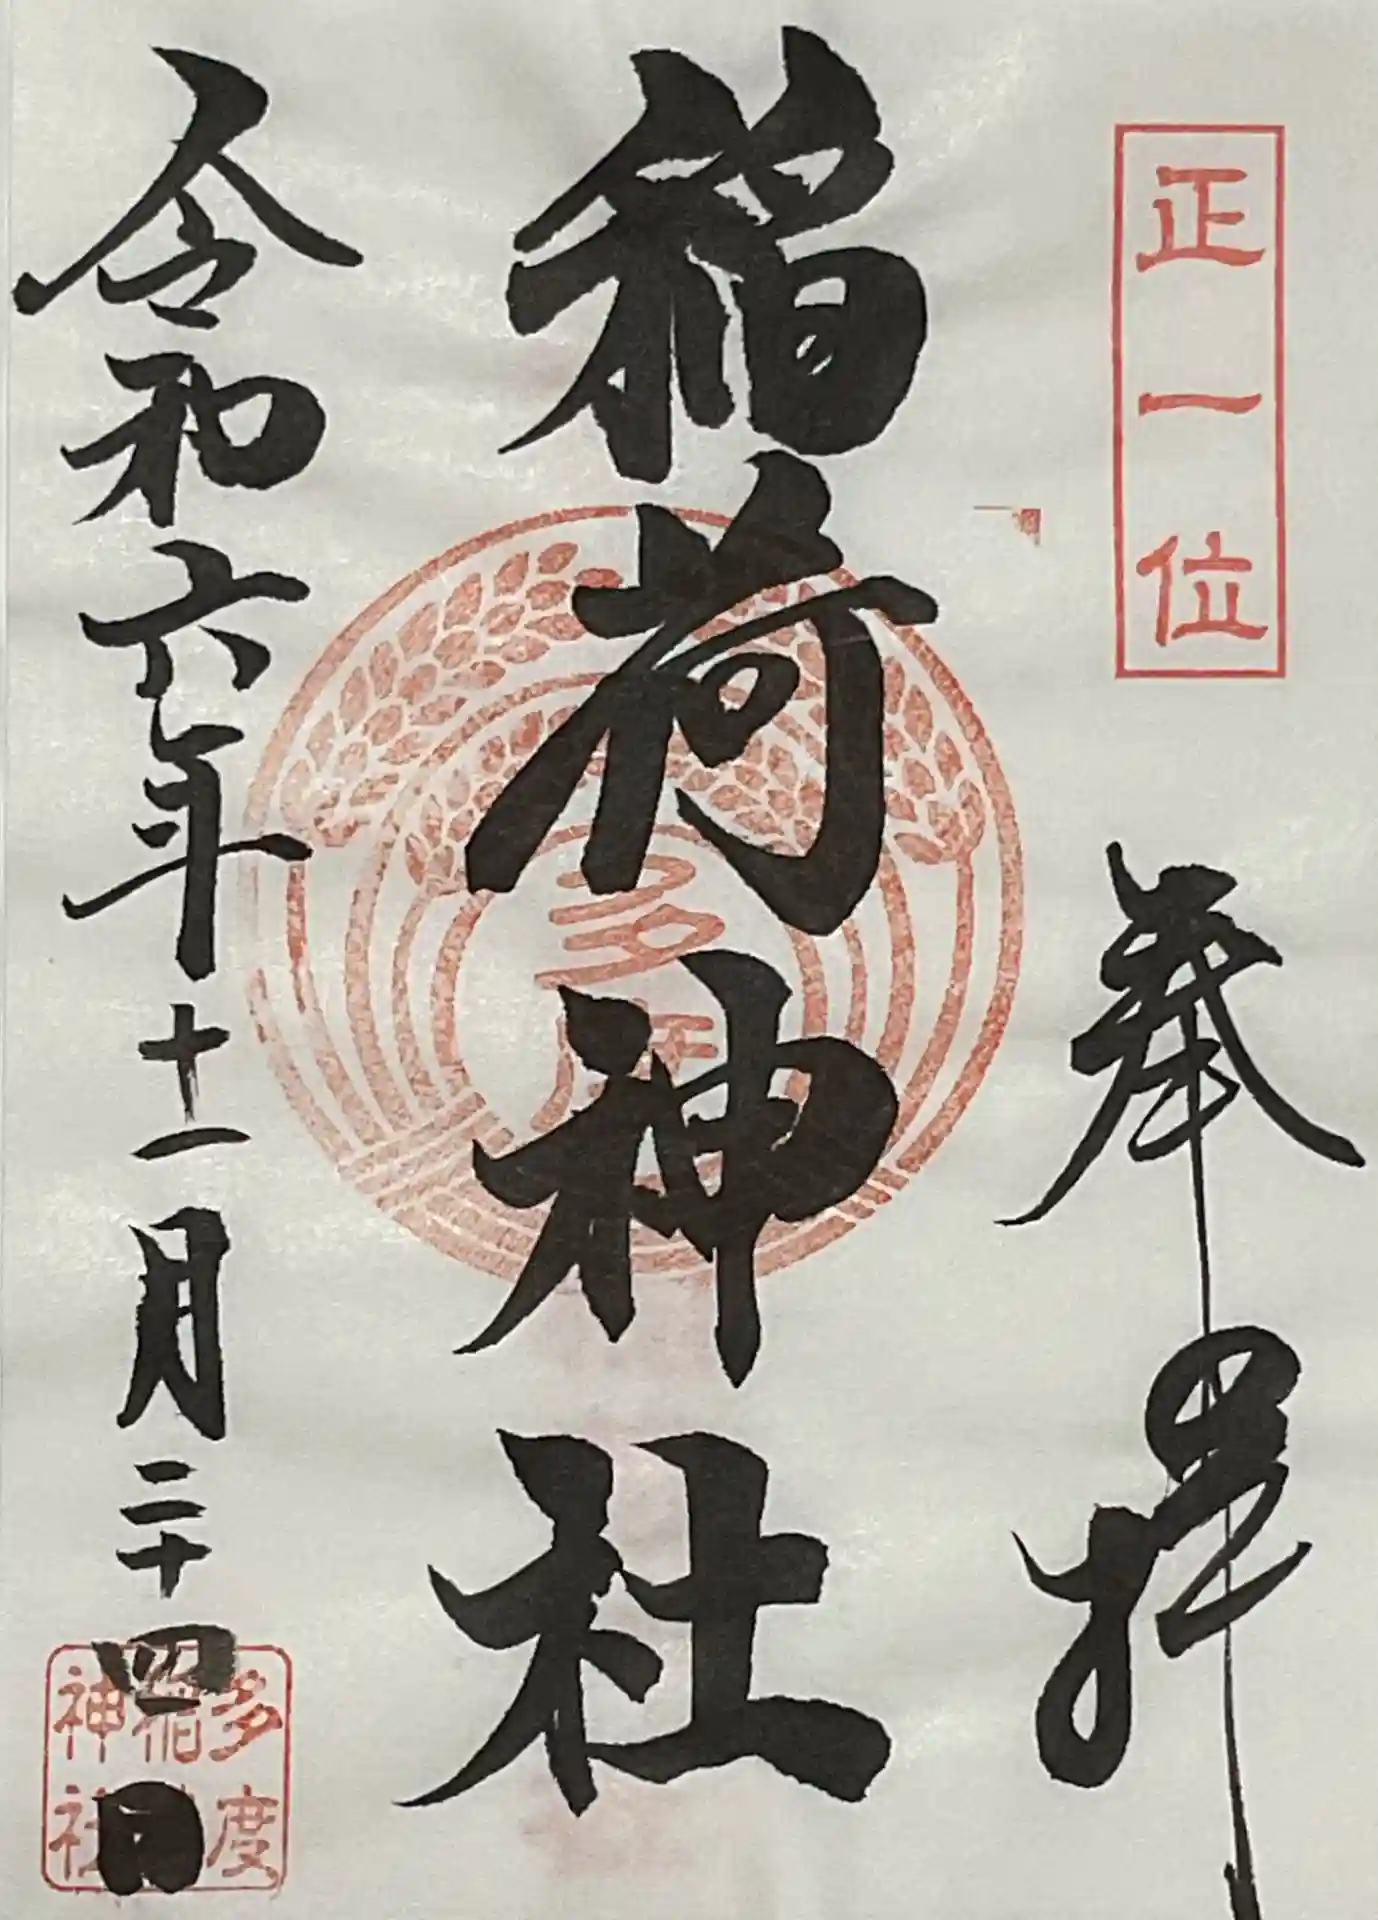 正一位
奉拝
稲荷神社
多度
令和六年十一月二十四日
多度
稲荷
神社